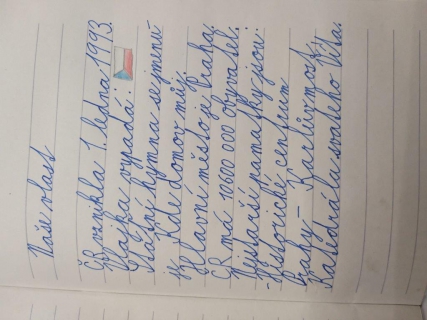 Naše vlast
ČR vznikla 1. ledna 1993.
Vlajka vypadá:
Státní hymna se jmenu-
je Kde domov můj.
Hlavní město je Praha.
ČR má 10600 000 obyvatel.
Nejstarší památky jsou:
-Historické centrum
Prahy - Karlův most
Katedrála svatého Víta.